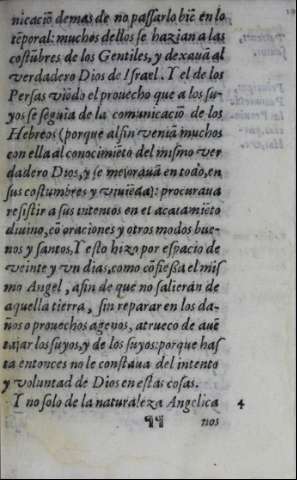 nicaciõ demas de no paſſarlo biẽ en lo
tẽporal: muchos dellos ſe hazian a las
coſtũbres de los Gentiles, y dexauã al
verdadero Dios de Iſrael. Y el de los
Perſas viẽdo el prouecho que a los ſu-
yos ſe ſeguia de la comunicaciõ de los
Hebreos (porque alfin veniã muchos
con ella al conocimiẽto del miſmo ver
dadero Dios, y ſe mejorauã en todo, en
ſus coſtumbres y viuiẽda): procuraua
reſiſtir a ſus intentos en el acatamiẽto
diuino, cõ oraciones y otros modos bue-
nos y ſantos. Y eſto hizo por eſpacio de
veinte y vn dias, como cõfieſſa el miſ
mo Angel, afin de que no ſalieran de
aquella tierra, ſin reparar en los da-
ños o prouechos agenos, atrueco de auẽ
tajar los ſuyos, y de los ſuyos: porque haſ
ta entonces no le conſtaua del intento
y voluntad de Dios en eſtas coſas.
Y no ſolo de la naturaleza Angelica 4
¶¶ nos